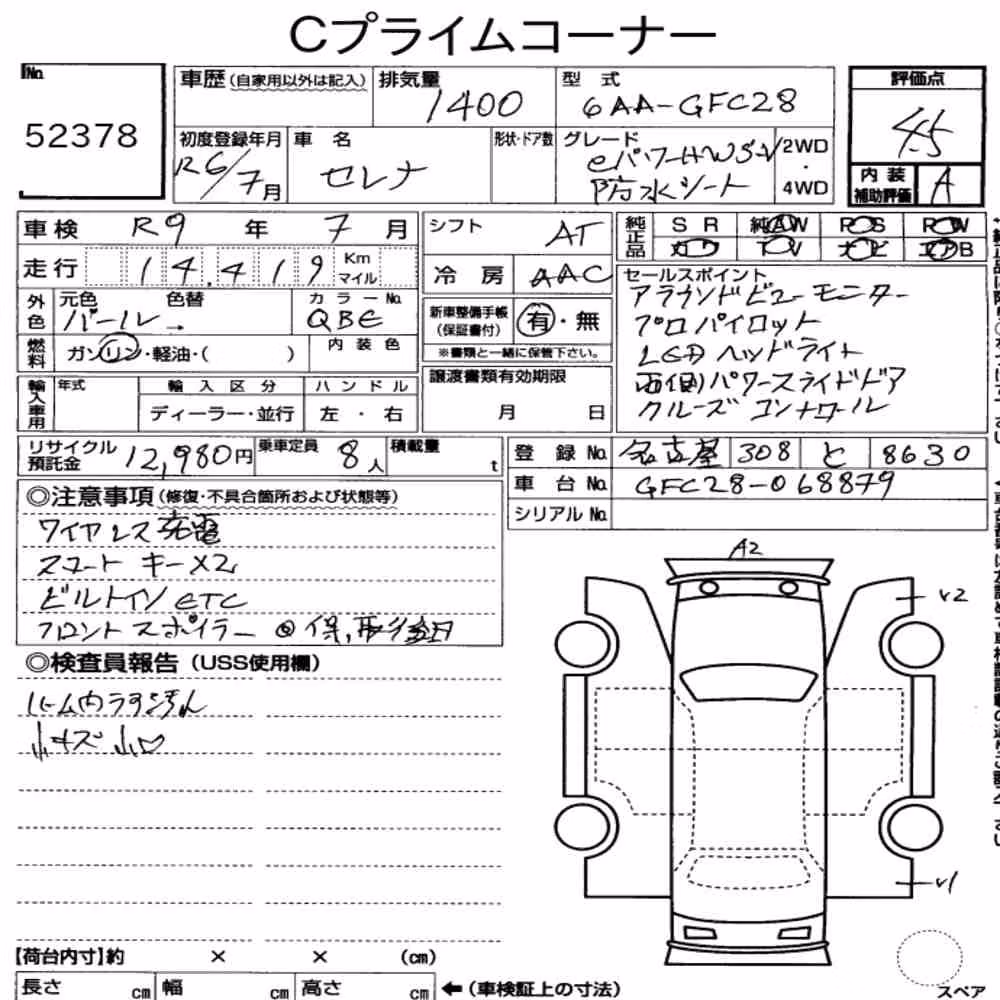 Cプライムコーナー
No.
52378
車歴(自家用以外は記入)
排気量
1400
型式
6AA-GFC28
評価点
4.5
初度登録年月
R6/7月
車名
セレナ
形状・ドア数
グレード
eパワーHWS-V
防水シート
2WD
・
4WD
内装
補助評価
A
車検 R9年 7月
シフト
AT
純正品
SR 純AW PS PW
カワ TV ナビ エアB
走行 14,419 Km マイル
冷房
AAC
外色
元色 色替
パール→
カラーNo.
QBE
新車整備手帳
(保証書付)
有・無
※書類と一緒に保管下さい。
セールスポイント
アラウンドビューモニター
プロパイロット
LEDヘッドライト
両側パワースライドドア
クルーズコントロール
燃料
ガソリン・軽油・( )
内装色
譲渡書類有効期限
月 日
輸入車用
年式
輸入区分
ディーラー・並行
ハンドル
左・右
リサイクル
預託金
12,980円
乗車定員
8人
積載量
t
登録No. 名古屋 308 と 8630
車台No. GFC28-068879
シリアルNo.
◎注意事項(修復・不具合箇所および状態等)
ワイヤレス充電
スマートキーX2
ビルトインETC
フロントスポイラー ◎保,取後組
◎検査員報告(USS使用欄)
小キズ 小凹
A2
v2
v1
【荷台内寸】約 × × (cm)
長さ cm 幅 cm 高さ cm ←(車検証上の寸法)
スペア